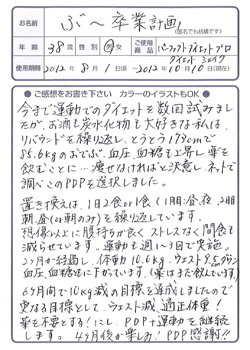 ぶ〜卒業計画
(匿名でも結構です)
年齢 38歳 性別 男・女 ご使用商品 パーフェクトダイエットプロ ダイエットシェイク
使用期間 2012年8月1日頃〜2012年10月10日(現在)
●ご感想をお書き下さい カラーのイラストもOK●
今まで運動でのダイエットを数回試みまし
たが、お酒も炭水化物も大好きな私は、
リバウンドを繰り返し、とうとう179cmで
86.6kgのおでぶ。血圧、血糖も上昇し薬を
飲むことに… 痩せなければと決意し、ネットで
調べこのPDPを選択しました。
置き換えは、1日2食or1食(1期:昼・夜、2期
朝、昼or朝のみ)を繰り返しています。
想像以上に腹持ちが良くストレスなく間食も
減らせています。運動も週1〜3日で実施。
2ヶ月が経過し、体重力10.6kg、ウエスト9.5cmダウン
血圧、血糖共に下がっています。(薬はまだ飲んでいます)
6ヶ月間で10kg減の目標を達成しましたので
更なる目標として、ウエスト減、適正体重!
薬を不要とする!にし、PDP+運動を継続
します。4ヶ月後が楽しみ! PDP感謝!!